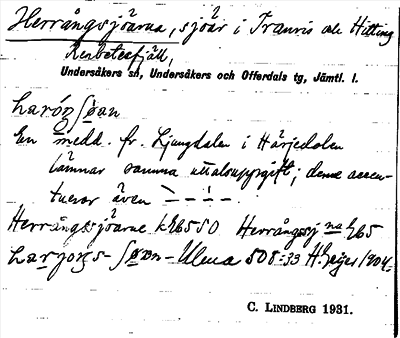 Herrångsjöarna, sjöar i Tranris och Hitting
Renbetesfjäll,
Undersåkers sn, Undersåkers och Offerdals tg, Jämtl. l.
En medd. fr. Ljungdalen i Härjedalen
lämnar samma uttalsuppgift; denne accen-
tuerar även
Herrångssjöarne k Herrångssj
Ulma 508:33 H. Geijer 1904.
C. LINDBERG 1931.